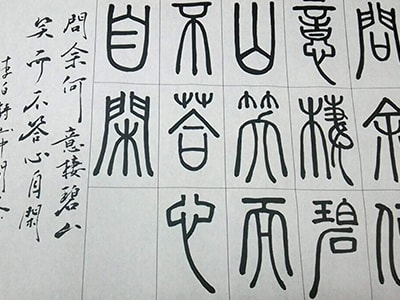 問余何
意棲碧
山笑而
不答心
自閑
問余何意棲碧山
笑而不答心自閑
李白詩山中問答